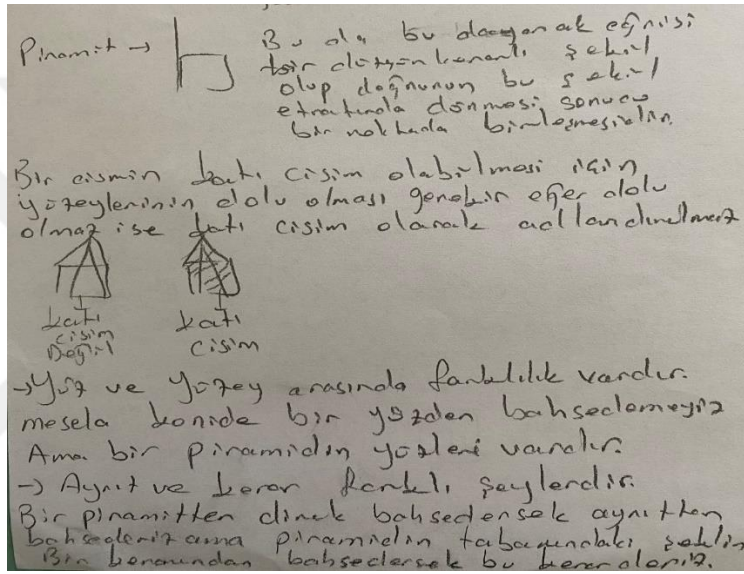 Piramit →
Bu da bu dayanak eğrisi
bir düzgün kenarlı şekil
olup doğrunun bu şekil
etrafında dönmesi sonucu
bir noktada birleşmesidir.
Bir cismin katı cisim olabilmesi için
yüzeylerinin dolu olması gerekir eğer dolu
olmaz ise katı cisim olarak adlandırılmaz
katı cisim Değil
katı cisim
→ Yüz ve Yüzey arasında farklılık vardır.
mesela konide bir yüzden bahsedemeyiz
Ama bir piramidin yüzleri vardır.
→ Ayrıt ve kenar farklı şeylerdir.
Bir piramitten direk bahsedersek ayrıttan
bahsederiz ama piramidin tabanındaki şeklin
Bir kenarından bahsedersek bu kenar deriz.